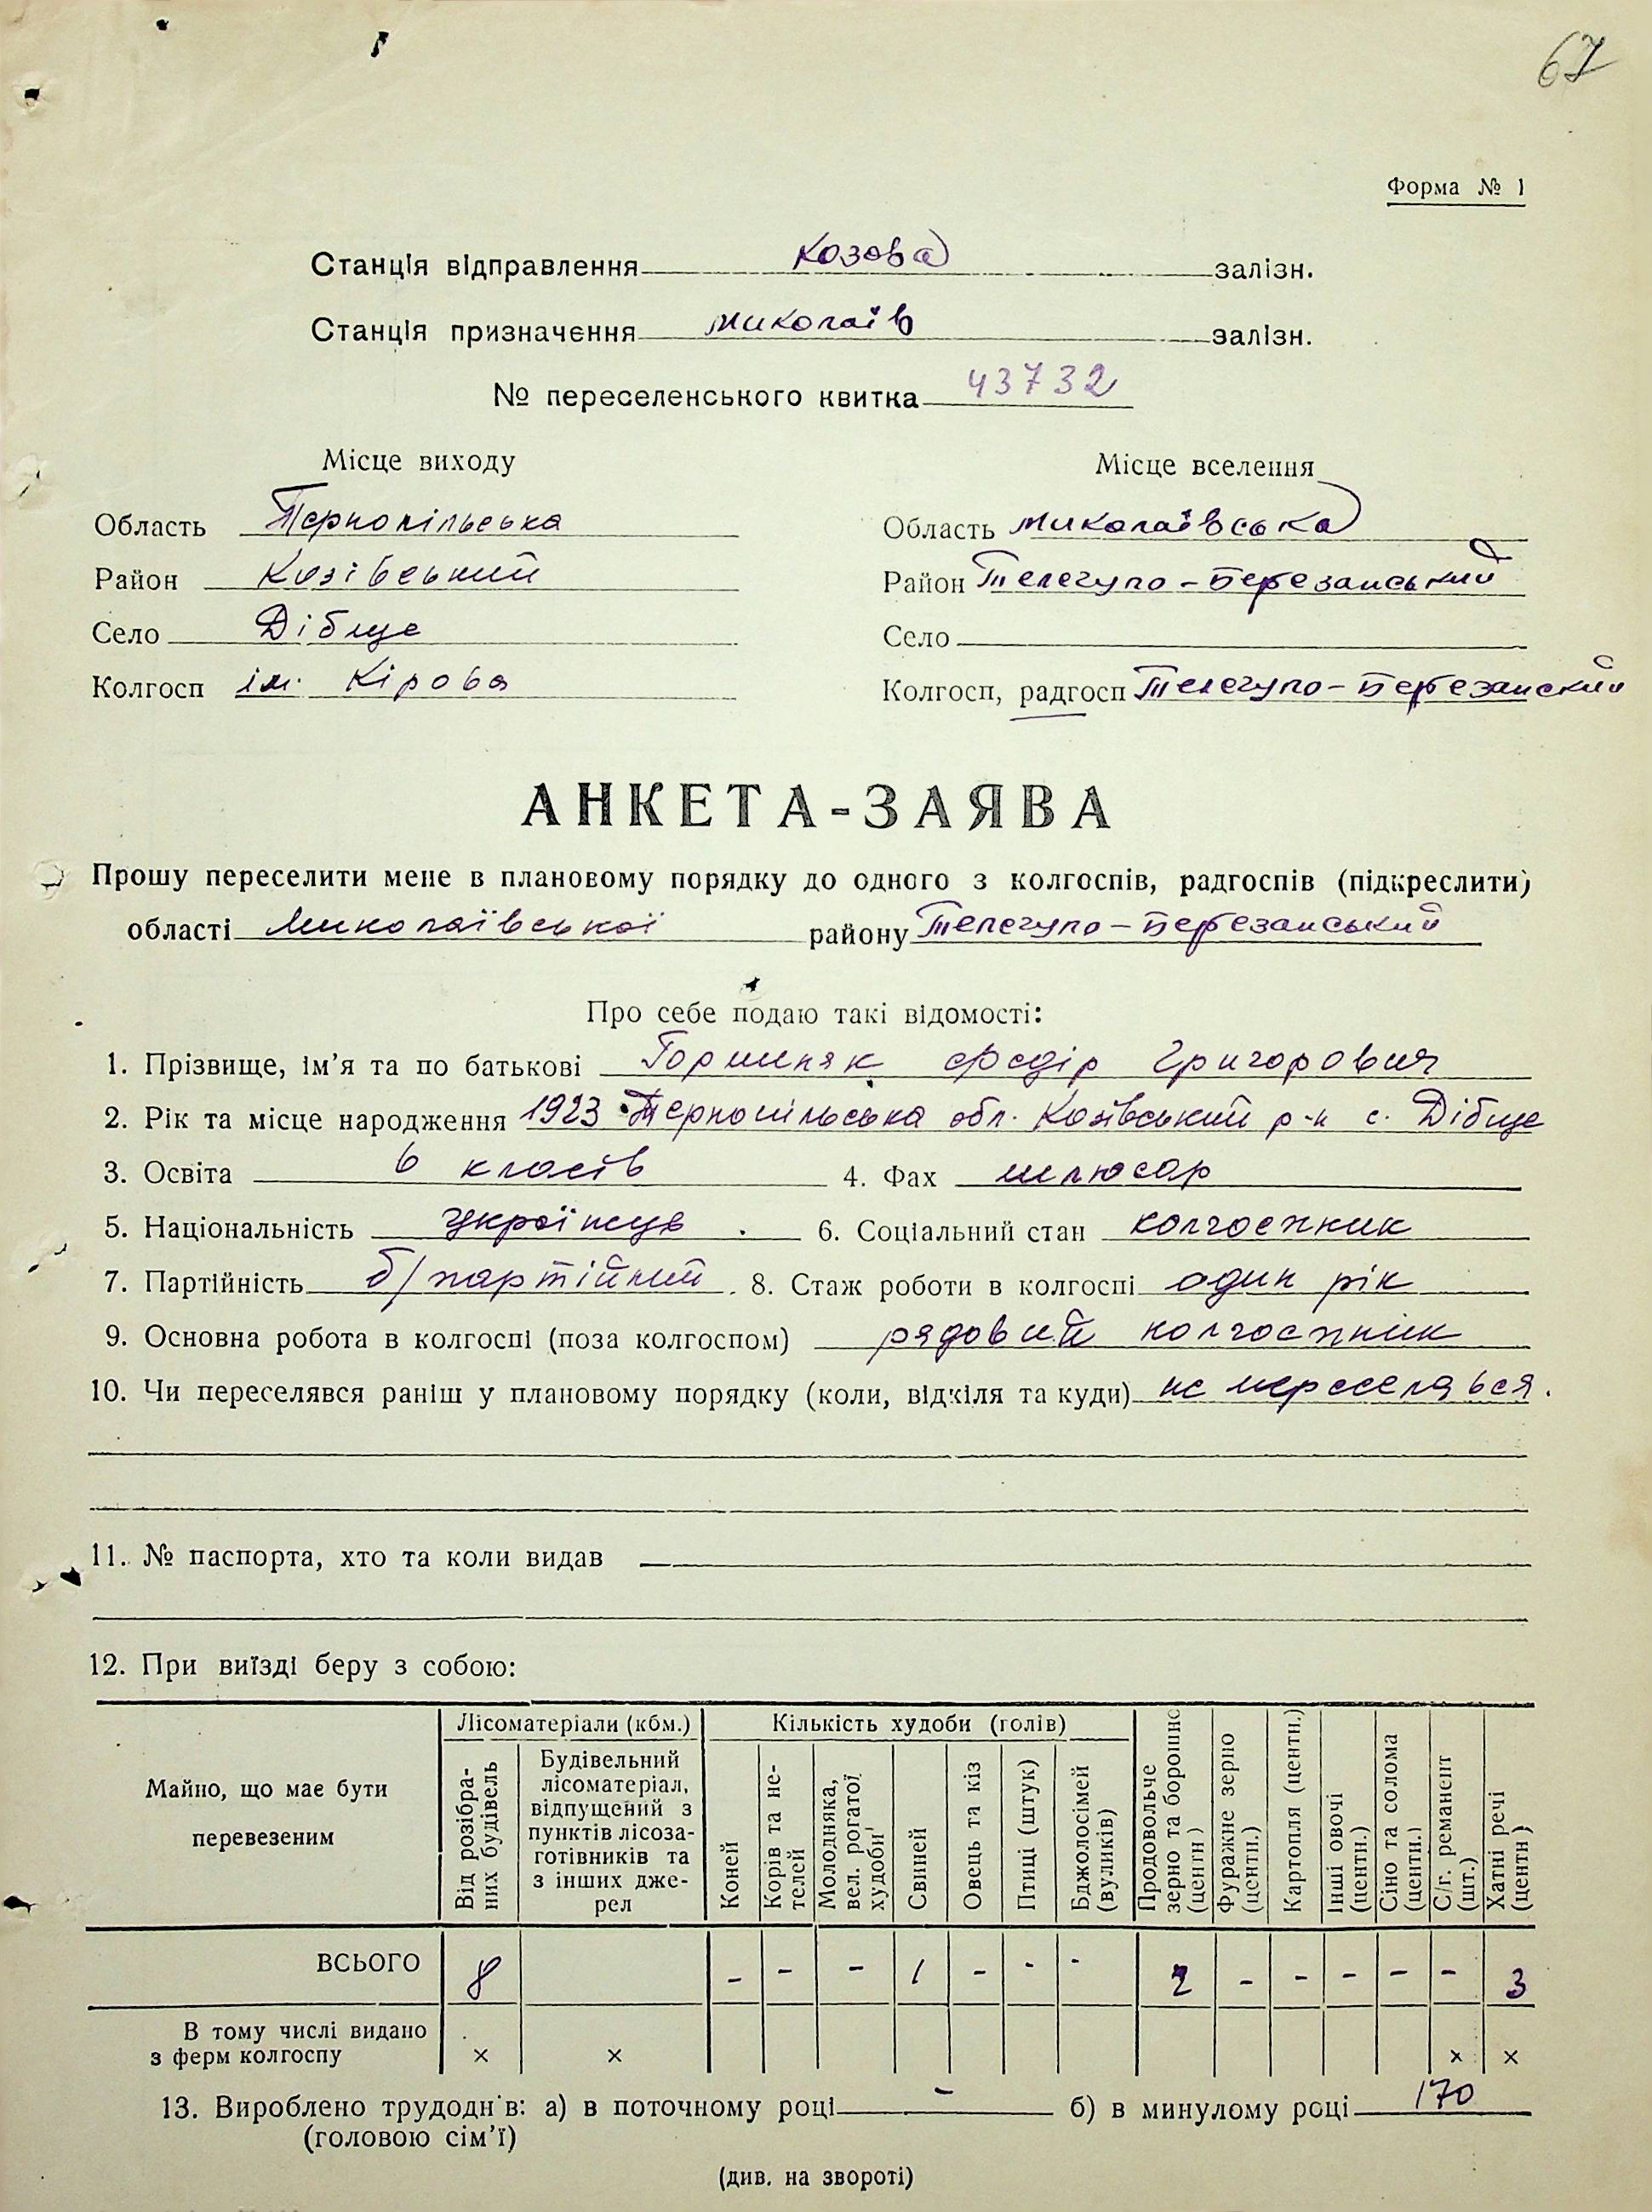 67
Форма № 1
Станція відправлення Козова залізн.
Станція призначення Миколаїв залізн.
№ переселенського квитка 43732
Місце виходу Місце вселення
Область Тернопільська Область Миколаївська
Район Козівський Район Телегуло-Березанський
Село Дібще Село
Колгосп ім. Кірова Колгосп, радгосп Телегуло-Березанский
АНКЕТА-ЗАЯВА
Прошу переселити мене в плановому порядку до одного з колгоспів, радгоспів (підкреслити)
області Миколаївської району Телегуло-Березанський
Про себе подаю такі відомості:
1. Прізвище, ім'я та по батькові Федір Григорович
2. Рік та місце народження 1923 Тернопільська обл. Козівський р-н с. Дібще
3. Освіта 6 класів 4. Фах шлюсар
5. Національність українець 6. Соціальний стан колгоспник
7. Партійність б/партійний 8. Стаж роботи в колгоспі один рік
9. Основна робота в колгоспі (поза колгоспом) рядовий колгоспник
10. Чи переселявся раніш у плановому порядку (коли, відкіля та куди) не переселявся.
11. № паспорта, хто та коли видав
12. При виїзді беру з собою:
Майно, що має бути
перевезеним
Лісоматеріали (кбм.)
Від розібра-
них будівель
Будівельний
лісоматеріал,
відпущений з
пунктів лісоза-
готівників та
з інших дже-
рел
Кількість худоби (голів)
Коней
Корів та не-
телей
Молодняка,
вел. рогатої
худоби
Свиней
Овець та кіз
Птиці (штук)
Бджолосімей
(вуликів)
Продовольче
зерно та борошно
(центн)
Фуражне зерно
(центн.)
Картопля (центн.)
Інші овочі
(центн.)
Сіно та солома
(центн.)
С/г. реманент
(шт.)
Хатні речі
(центн)
ВСЬОГО 8 - - - 1 - - - 2 - - - - - 3
В тому числі видано
з ферм колгоспу × × × ×
13. Вироблено трудоднів: а) в поточному році - б) в минулому році 170
(головою сім'ї)
(див. на звороті)